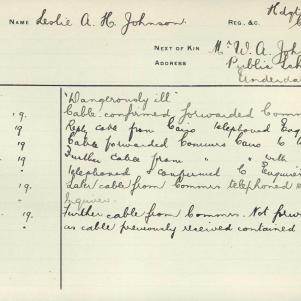 Hdqt
NAME Leslie A. H. Johnson. REG. &C.
NEXT OF KIN Mr W. A. John
ADDRESS Public Sch
Underda
"Dangerously ill"
19. Cable confirmed forwarded Comm
19 Reply cable from Cairo telephoned Enq
19 Cable forwarded Commrs Cairo to
19 Further cable from " " with
" Telephoned & confirmed to Enquirer
19. Later cable from Commrs telephoned
Enquirer.
19. Further cable from Commrs. Not forw
as cable previously received contained